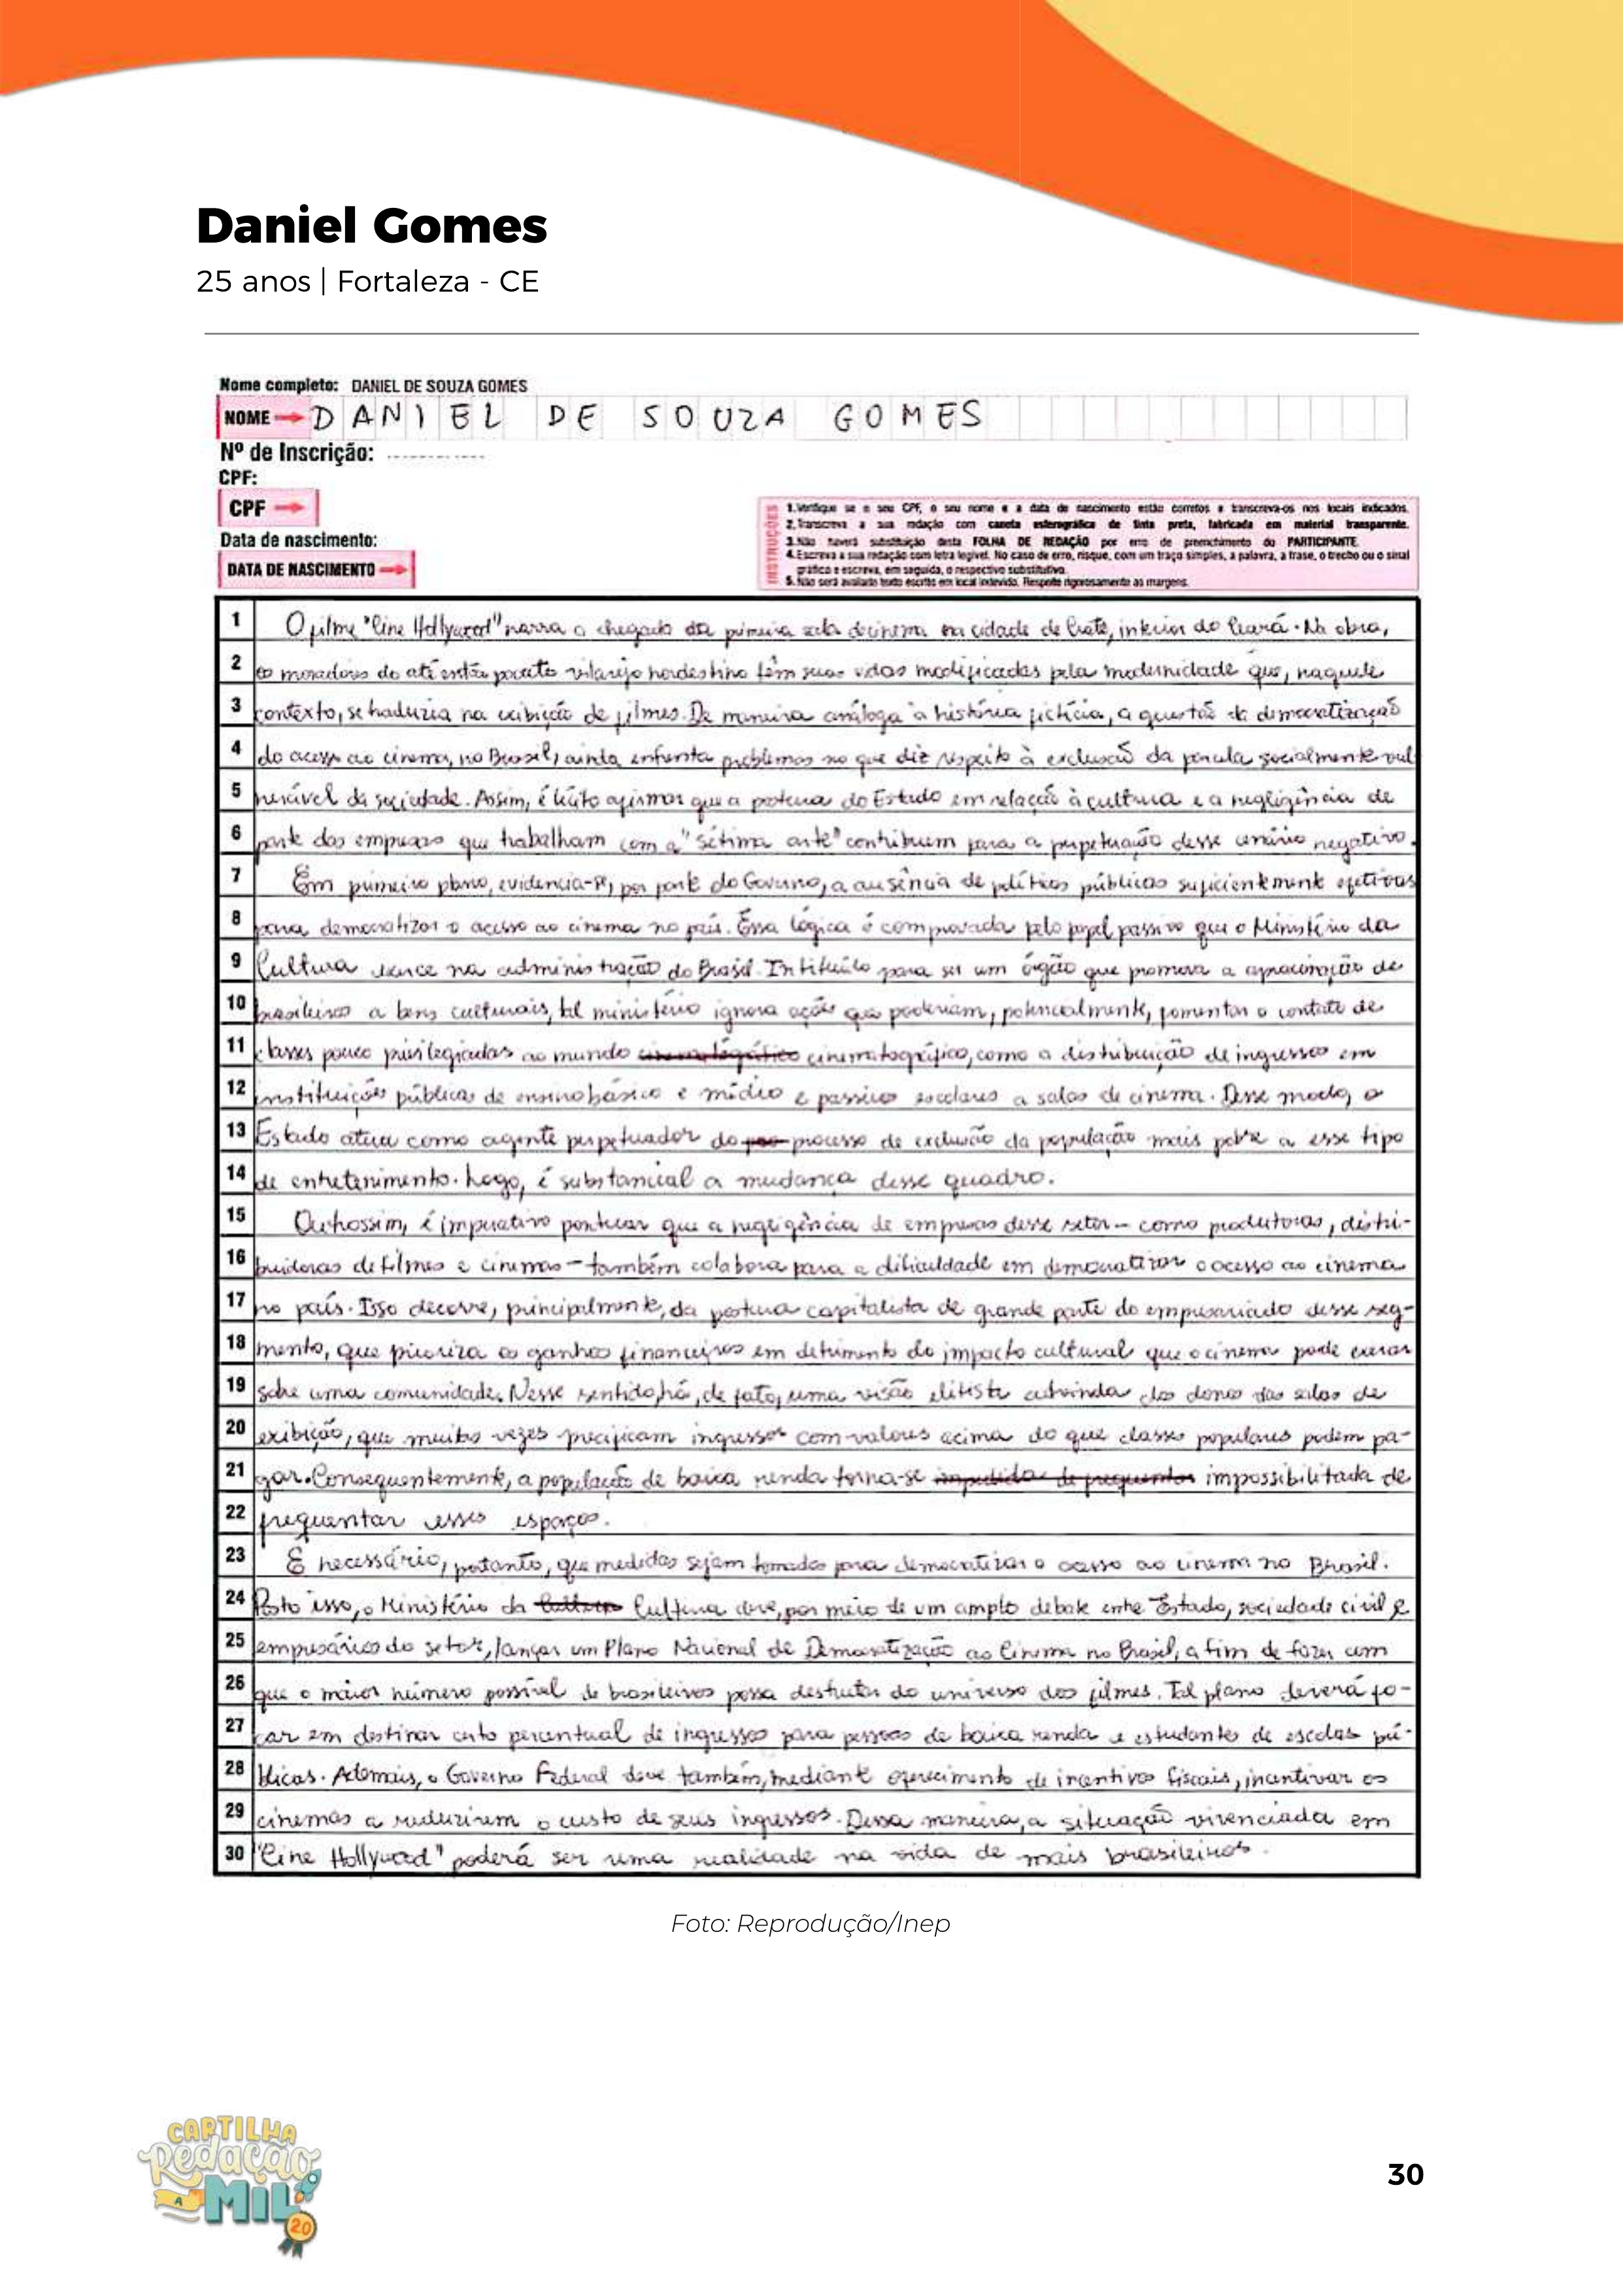 Daniel Gomes
25 anos | Fortaleza - CE
Nome completo: DANIEL DE SOUZA GOMES
NOME DANIEL DE SOUZA GOMES
Nº de Inscrição:
CPF:
CPF
Data de nascimento:
DATA DE NASCIMENTO
INSTRUÇÕES
1.Verifique se o seu CPF, o seu nome e a data de nascimento estão corretos e transcreva-os nos locais indicados.
2.Transcreva a sua redação com caneta esferográfica de tinta preta, fabricada em material transparente.
3.Não haverá substituição desta FOLHA DE REDAÇÃO por erro de preenchimento do PARTICIPANTE.
4.Escreva a sua redação com letra legível. No caso de erro, risque, com um traço simples, a palavra, a frase, o trecho ou o sinal
gráfico e escreva, em seguida, o respectivo substitutivo.
5.Não será avaliado texto escrito em local indevido. Respeite rigorosamente as margens.
1 O filme "Cine Hollywood" narra a chegada da primeira sala de cinema na cidade de Crato, interior do Ceará. Na obra,
2 os moradores do até então pacato vilarejo nordestino têm suas vidas modificadas pela modernidade que, naquele
3 contexto, se traduzia na exibição de filmes. De maneira análoga à história fictícia, a questão da democratização
4 do acesso ao cinema, no Brasil, ainda enfrenta problemas no que diz respeito à exclusão da parcela socialmente vul
5 nerável da sociedade. Assim, é lícito afirmar que a postura do Estado em relação à cultura e a negligência de
6 parte das empresas que trabalham com a "sétima arte" contribuem para a perpetuação desse cenário negativo.
7 Em primeiro plano, evidencia-se, por parte do Governo, a ausência de políticas públicas suficientemente efetivas
8 para democratizar o acesso ao cinema no país. Essa lógica é comprovada pelo papel passivo que o Ministério da
9 Cultura exerce na administração do Brasil. Instituído para ser um órgão que promova a aproximação de
10 brasileiros a bens culturais, tal ministério ignora ações que poderiam, potencialmente, fomentar o contato de
11 classes pouco privilegiadas ao mundo cinematográfico cinematográfico, como a distribuição de ingressos em
12 instituições públicas de ensino básico e médio e passeios escolares a salas de cinema. Desse modo, o
13 Estado atua como agente perpetuador do processo de exclusão da população mais pobre a esse tipo
14 de entretenimento. Logo, é substancial a mudança desse quadro.
15 Outrossim, é imperativo pontuar que a negligência de empresas desse setor - como produtoras, distri-
16 buidoras de filmes e cinemas - também colabora para a dificuldade em democratizar o acesso ao cinema
17 no país. Isso decorre, principalmente, da postura capitalista de grande parte do empresariado desse seg-
18 mento, que prioriza os ganhos financeiros em detrimento do impacto cultural que o cinema pode exercer
19 sobre uma comunidade. Nesse sentido, há, de fato, uma visão elitista advinda dos donos das salas de
20 exibição, que muitas vezes precificam ingressos com valores acima do que classes populares podem pa-
21 gar. Consequentemente, a população de baixa renda torna-se impedida de frequentar impossibilitada de
22 frequentar esses espaços.
23 É necessário, portanto, que medidas sejam tomadas para democratizar o acesso ao cinema no Brasil.
24 Posto isso, o Ministério da Cultura Cultura deve, por meio de um amplo debate entre Estado, sociedade civil e
25 empresários do setor, lançar um Plano Nacional de Democratização ao Cinema no Brasil, a fim de fazer com
26 que o maior número possível de brasileiros possa desfrutar do universo dos filmes. Tal plano deverá fo-
27 car em destinar certo percentual de ingressos para pessoas de baixa renda e estudantes de escolas pú-
28 blicas. Ademais, o Governo Federal deve também, mediante oferecimento de incentivos fiscais, incentivar os
29 cinemas a reduzirem o custo de seus ingressos. Dessa maneira, a situação vivenciada em
30 "Cine Hollywood" poderá ser uma realidade na vida de mais brasileiros.
Foto: Reprodução/Inep
CARTILHA
Redação
A MIL
20
30